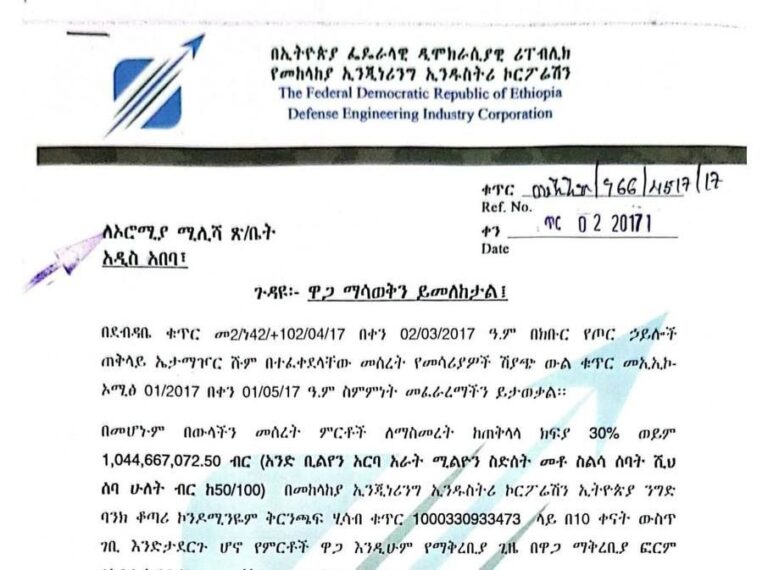 በኢትዮጵያ ፌዴራላዊ ዲሞክራሲያዊ ሪፐብሊክ
የመከላከያ ኢንጂነሪንግ ኢንዱስትሪ ኮርፖሬሽን
The Federal Democratic Republic of Ethiopia
Defense Engineering Industry Corporation
ቁጥር
Ref. No.
ቀን ጥር 02 2017
Date
ለኦሮሚያ ሚሊሻ ጽ/ቤት
አዲስ አበባ፤
ጉዳዩ፡- ዋጋ ማሳወቅን ይመለከታል፤
በደብዳቤ ቁጥር መ2/ነ42/+102/04/17 በቀን 02/03/2017 ዓ.ም በክቡር የጦር ኃይሎች
ጠቅላይ ኤታማዦር ሹም በተፈቀደላቸው መሰረት የመሳሪያዎች ሽያጭ ውል ቁጥር መኢኢኮ-
ኦሚፅ 01/2017 በቀን 01/05/17 ዓ.ም ስምምነት መፈራረማችን ይታወቃል፡፡
በመሆኑም በውላችን መሰረት ምርቶች ለማስመረት ከጠቅላላ ክፍያ 30% ወይም
1,044,667,072.50 ብር (አንድ ቢልየን አርባ አራት ሚልዮን ስድስት መቶ ስልሳ ሰባት ሺህ
ሰባ ሁለት ብር ከ50/100) በመከላከያ ኢንጂነሪንግ ኢንዱስትሪ ኮርፖሬሽን ኢትዮጵያ ንግድ
ባንክ ቆጣሪ ኮንዶሚንዬም ቅርንጫፍ ሂሳብ ቁጥር 1000330933473 ላይ በ10 ቀናት ውስጥ
ገቢ እንድታደርጉ ሆኖ የምርቶች ዋጋ እንዲሁም የማቅረቢያ ጊዜ በዋጋ ማቅረቢያ ፎርም